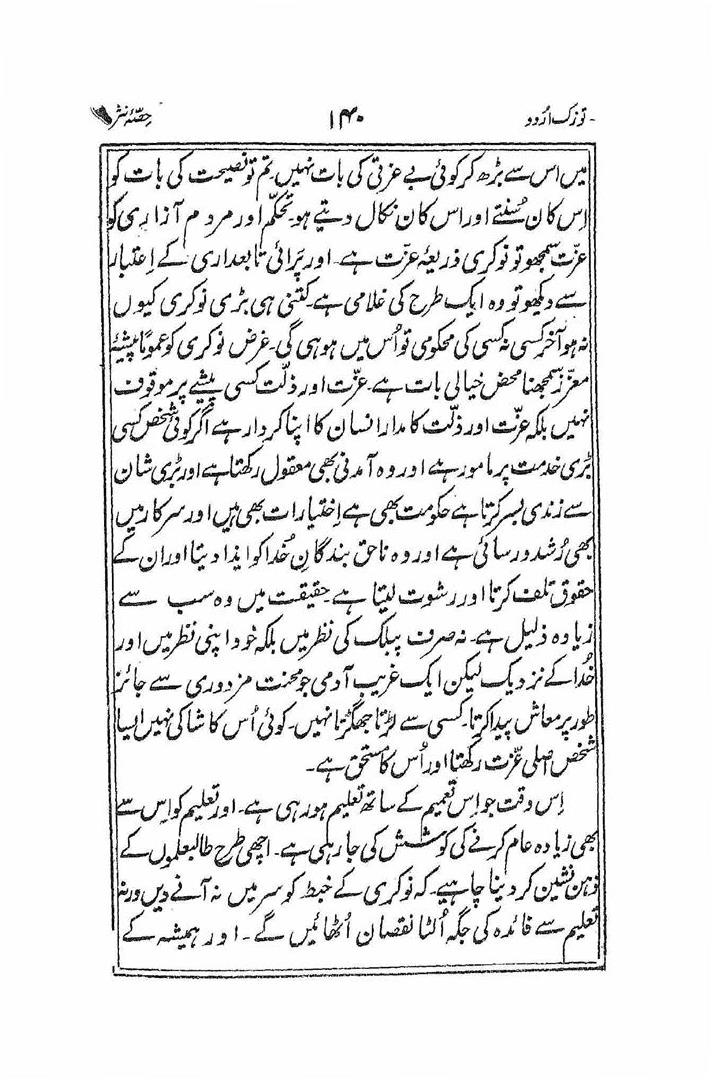 توزک اُردو ۱۴۰ حِصّۂ نثر
میں اس سے بڑھ کر کوئی بے عزتی کی بات نہیں۔ تم تو نصیحت کی بات کو
اِس کان سُنتے اور اس کان نکال دیتے ہو۔ تحکّم اور مردم آزاری کو
عزّت سمجھو تو نوکری ذریعۂ عزّت ہے۔ اور پَرائی تابعداری کے اِعتبار
سے دیکھو تو وہ ایک طرح کی غلامی ہے۔ کتنی ہی بڑی نوکری کیوں
نہ ہو آخر کسی نہ کسی کی محکومی تو اُس میں ہو ہی گی۔ غرض نوکری کو عمومًا پیشۂ
معزّز سمجھنا محض خیالی بات ہے۔ عزّت اور ذلّت کسی پیشے پر موقوف
نہیں بلکہ عزّت اور ذلّت کا مدار انسان کا اپنا کردار ہے اگر کوئی شخص کسی
بڑی خدمت پر مامور ہے اور وہ آمدنی بھی معقول رکھتا ہے اور بڑی شان
سے زندی بسر کرتا ہے حکومت بھی ہے اِختیارات بھی ہیں اور سرکار میں
بھی رُشد و رسائی ہے اور وہ ناحق بندگانِ خُدا کو ایذا دیتا اور ان کے
حقوق تلف کرتا اور رشوت لیتا ہے۔ حقیقت میں وہ سب سے
زیادہ ذلیل ہے۔ نہ صرف پبلک کی نظر میں بلکہ خود اپنی نظر میں اور
خُدا کے نزدیک لیکن ایک غریب آدمی جو محنت مزدوری سے جائز
طور پر معاش پیدا کرتا۔ کسی سے لڑتا جھگڑتا نہیں۔ کوئی اُس کا شاکی نہیں ایسا
شخص اصلی عزّت رکھتا اور اُس کا مستحق ہے۔
اِس وقت جو اِس تعمیم کے ساتھ تعلیم ہو رہی ہے۔ اور تعلیم کو اِس سے
بھی زیادہ عام کرنے کی کوشش کی جا رہی ہے۔ اچھی طرح طالبعلموں کے
ذہن نشین کر دینا چاہیے۔ کہ نوکری کے خبط کو سر میں نہ آنے دیں ورنہ
تعلیم سے فائدہ کی جگہ اُلٹا نقصان اُٹھائیں گے۔ اور ہمیشہ کے